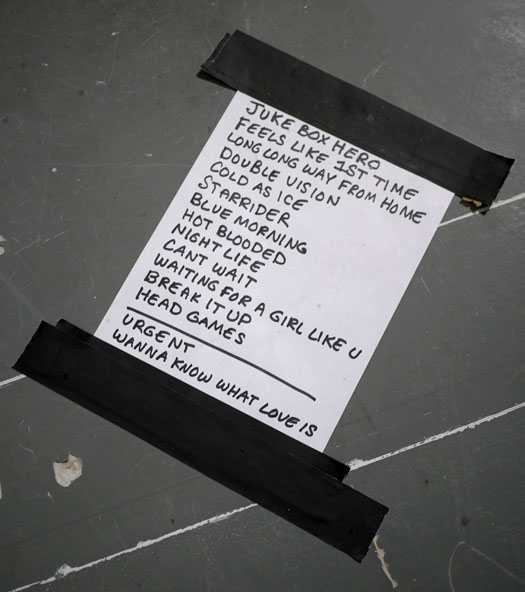 JUKE BOX HERO
FEELS LIKE 1ST TIME
LONG LONG WAY FROM HOME
DOUBLE VISION
COLD AS ICE
STARRIDER
BLUE MORNING
HOT BLOODED
NIGHT LIFE
CANT WAIT
WAITING FOR A GIRL LIKE U
BREAK IT UP
HEAD GAMES
URGENT
WANNA KNOW WHAT LOVE IS